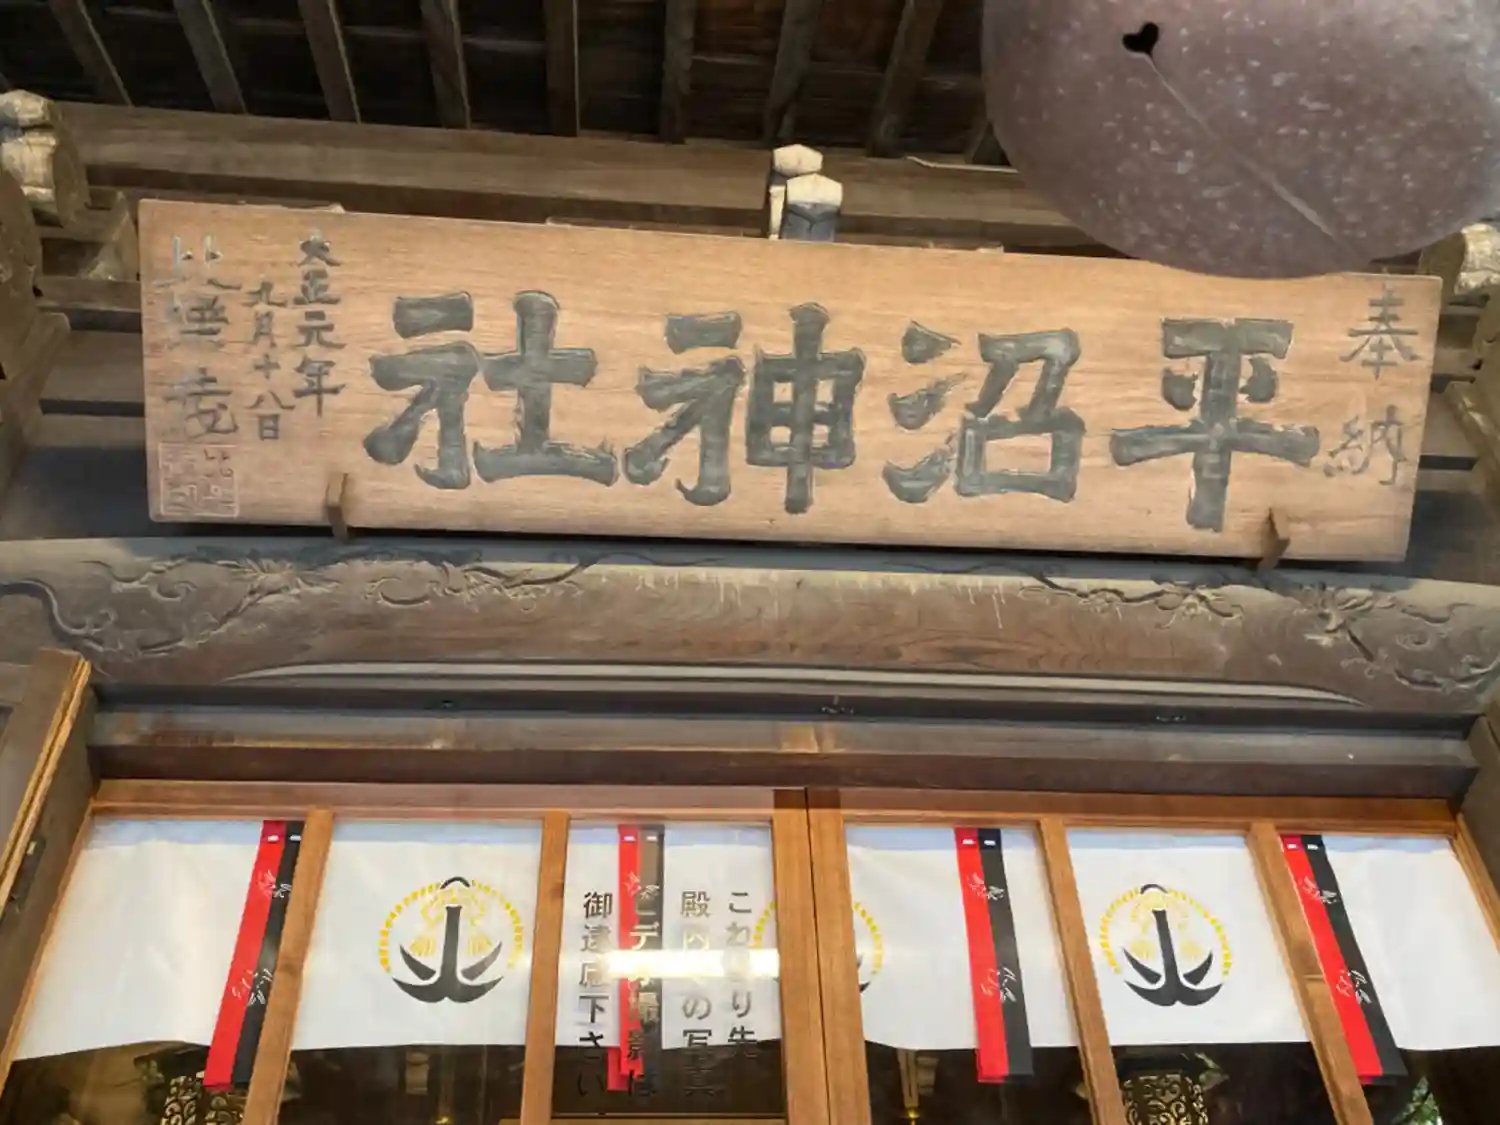 奉納
平沼神社
大正元年
九月十八日
これより先
殿内での写真
ビデオ撮影は
御遠慮下さい